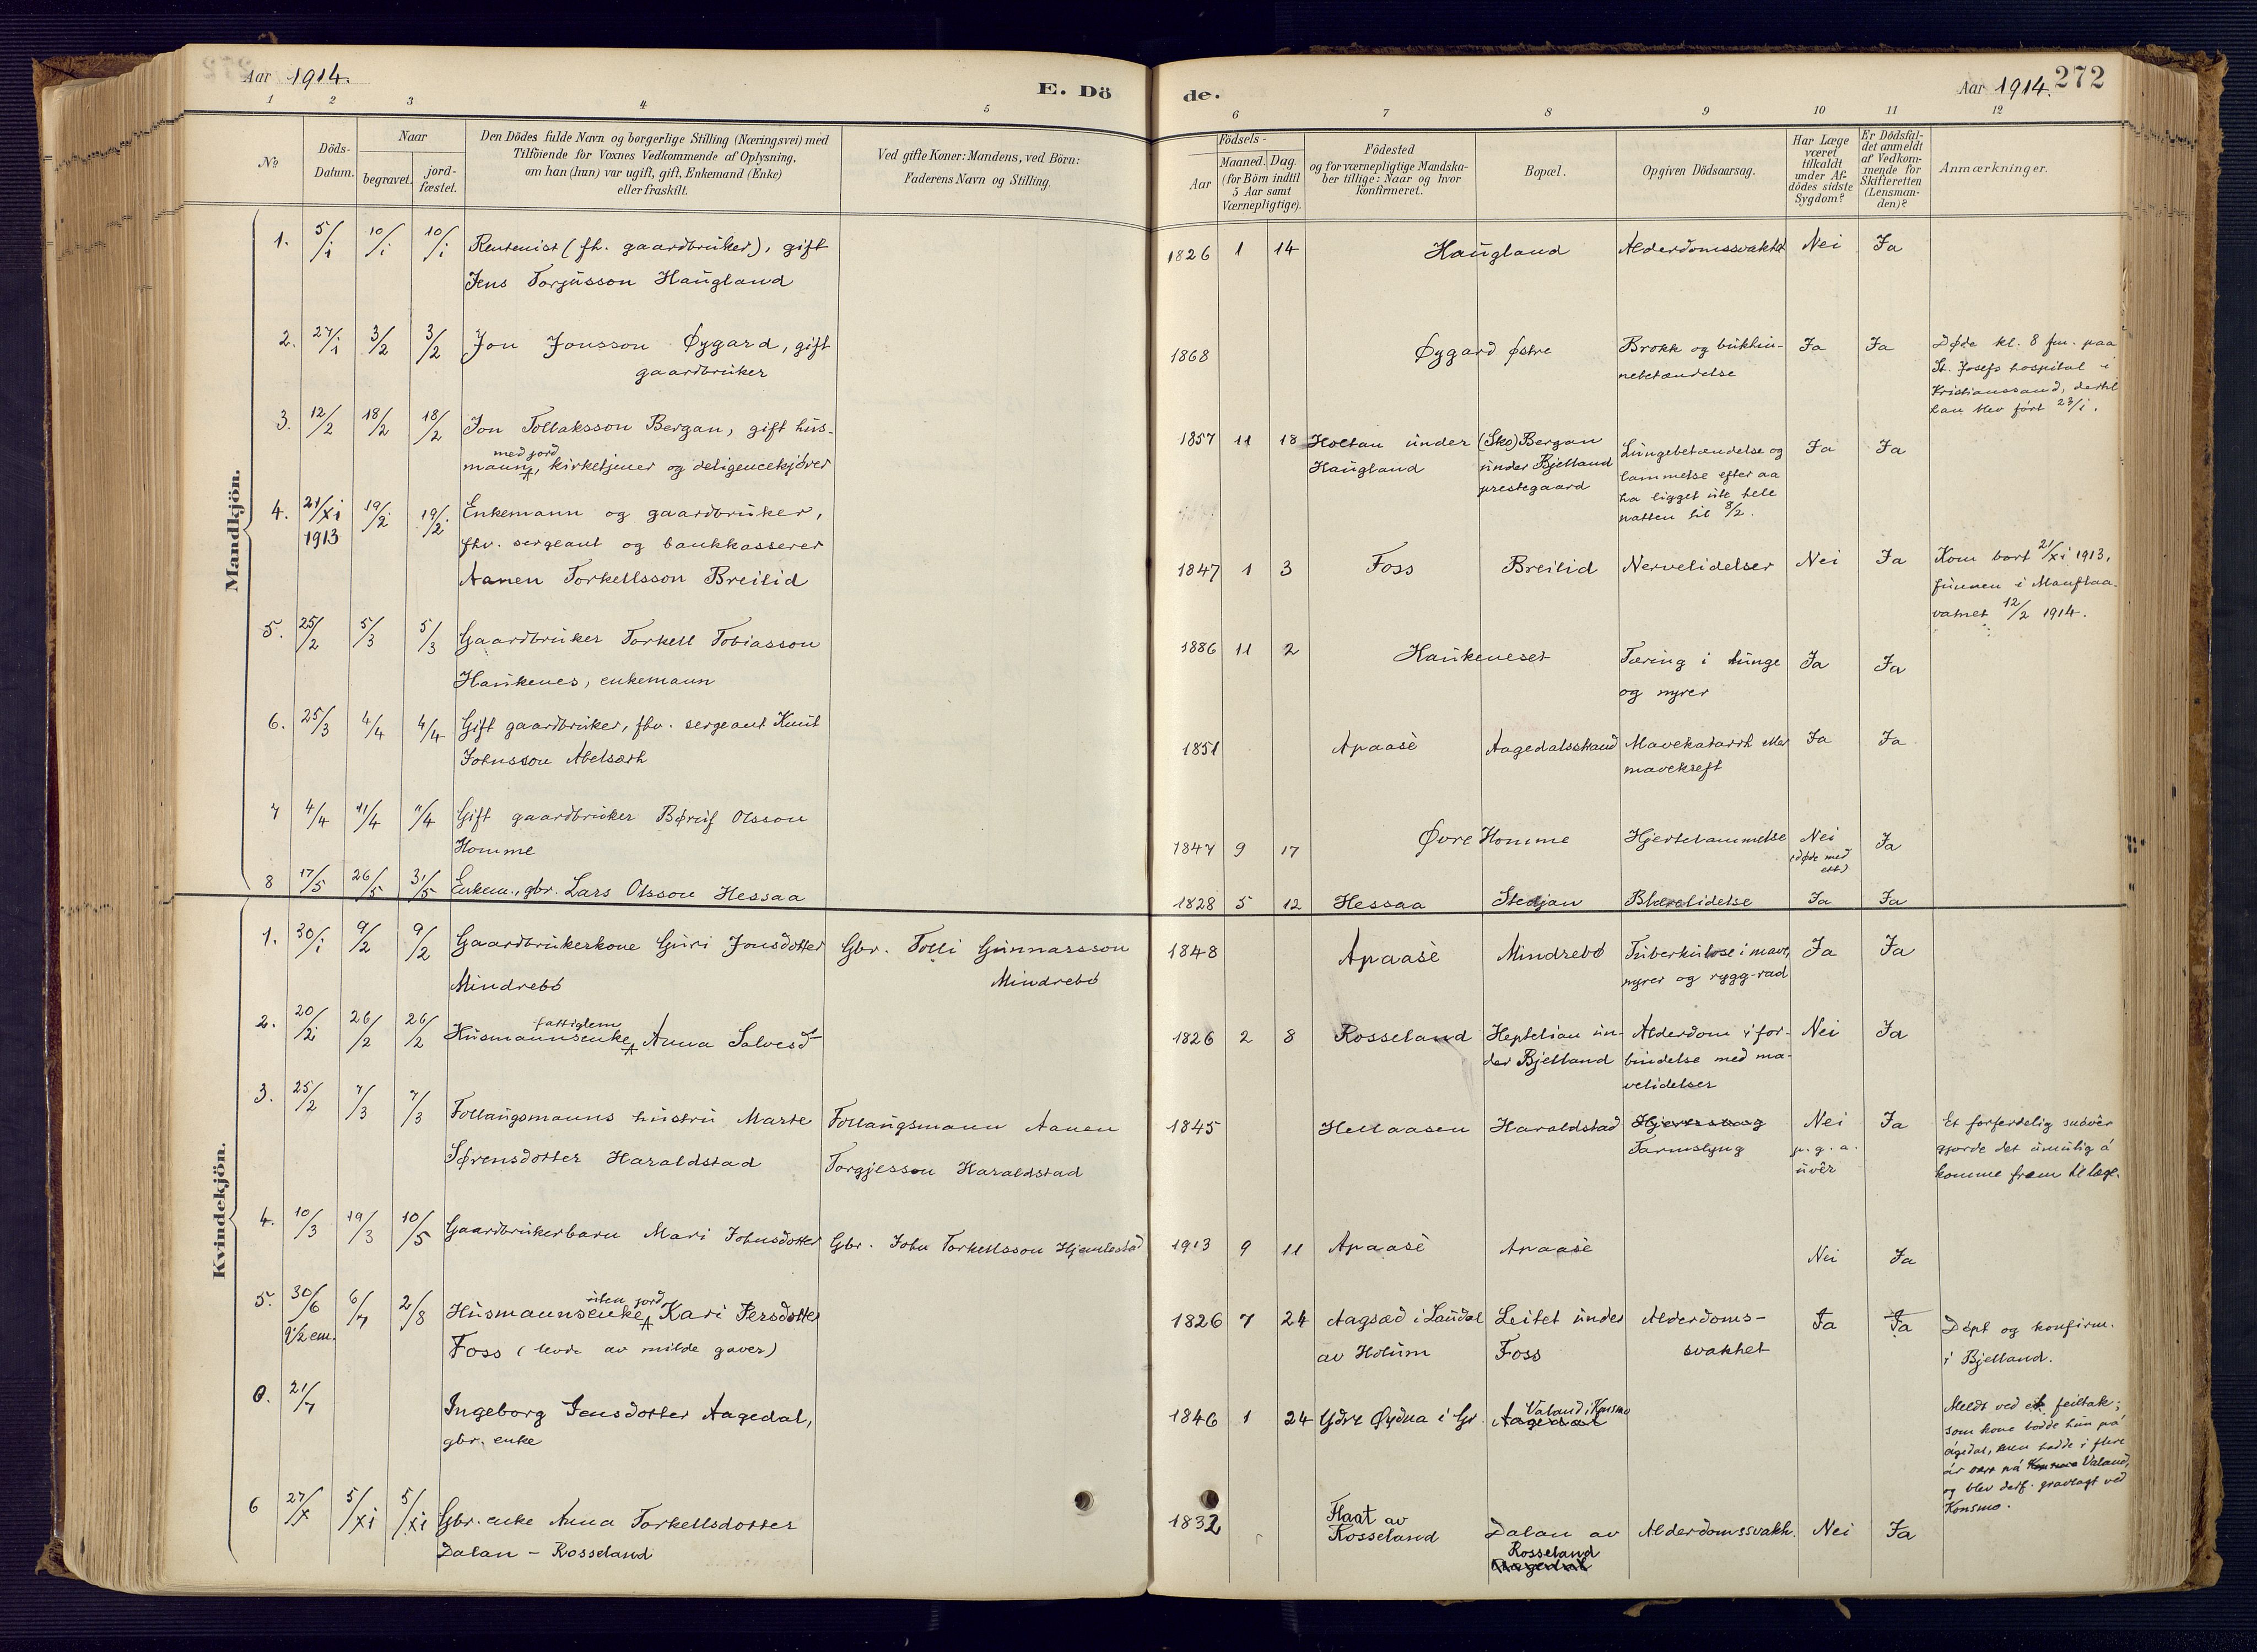 Aar 1914.
E. Dö
de.
Aar 1914. 272
1 2 3 4 5 6 7 8 9 10 11 12
No
Döds-
Datum.
Naar
begravet.
jord-
fæstet.
Den Dödes fulde Navn og borgerlige Stilling (Næringsvei) med
Tilföiende for Voxnes Vedkommende af Oplysning,
om han (hun) var ugift, gift, Enkemand (Enke)
eller fraskilt.
Ved gifte Koner: Mandens, ved Börn:
Faderens Navn og Stilling.
Födsels-
Aar
Maaned. Dag.
(for Börn indtil
5 Aar samt
Værnepligtige).
Födested
og for værnepligtige Mandska-
ber tillige: Naar og hvor
konfirmeret.
Bopæl.
Opgiven Dödsaarsag.
Har Læge
været
tilkaldt
under Af-
dödes sidste
Sygdom?
Er Dödsfal-
det anmeldt
af Vedkom-
mende for
Skifteretten
(Lensman-
den)?
Anmærkninger.
Mandkjön.
1. 5/1 10/1 10/1 Rentenist (fh. gaardbruker), gift
Jens Torjusson Haugland
1826 1 14 Haugland Alderdomssvakhet Nei Ja
2. 27/1 3/2 3/2 Jon Jonsson Øygard, gift
gaardbruker
1868 Øygard østre Brokk og bukhin-
nebetændelse
Ja Ja
Døde kl. 8 fm. paa
St. Josefs hospital i
Kristianssand, dertil
han blev ført 23/1.
3. 12/2 18/2 18/2 Jon Tollaksson Bergan, gift hus-
med jord
mann, kirketjener og deligencekjører
1857 11 18 Holtan under
Haugland
(Sko) Bergan
under Bjelland
prestegaard
Lungebetændelse og
lammelse efter aa
ha ligget ute hele
natten til 8/2.
Ja Ja
4. 21/xi 1913 19/2 19/2 Enkemann og gaardbruker,
fhv. sergeant og bankkasserer
Aanen Torkellsson Breilid
1847 1 3 Foss Breilid Nervelidelser Nei Ja
Kom bort 21/xi 1913,
funnen i Manflaa-
vatnet 12/2 1914.
5. 25/2 5/3 5/3 Gaardbruker Torkell Tobiasson
Haukenes, enkemann
1886 11 2 Haukeneset Tæring i lunge
og nyrer
Ja Ja
6. 25/3 4/4 4/4 Gift gaardbruker, fhv. sergeant Knut
Johnsson Abelsæth
1851 Apaasè Aagedalsstrand Mavekatarrh eller
mavekreft
Ja Ja
7 4/4 11/4 11/4 Gift gaardbruker Børuf Olsson
Homme
1847 9 17 Øvre Homme Hjertelammelse Nei
(døde med
ett)
Ja
8 17/5 26/5 31/5 Enkem., gbr. Lars Olsson Hessaa
1828 5 12 Hessaa Stedjan Blærelidelse Ja Ja
Kvindekjön.
1. 30/1 9/2 9/2 Gaardbrukerkone Guri Jonsdotter
Mindrebø
Gbr. Tolli Gunnarsson
Mindrebø
1848 Apaasè Mindrebø Tuberkulose i mave,
nyrer og rygg-rad
Ja Ja
2. 20/2 26/2 26/2
fattiglem
Husmannsenke Anna Salvesd
1826 2 8 Rosseland Heptelian un-
der Bjelland
Alderdom i for-
bindelse med ma-
velidelser
Nei Ja
3. 25/2 7/3 7/3 Follaugsmanns hustru Marte
Sørensdotter Haraldstad
Follaugsmann Aanen
Torgjesson Haraldstad
1845 Hellaasen Haraldstad
Tarmslyng
Nei
p. g. a.
uvêr
Ja
Et forferdelig snøvêr
gjorde det umulig å
komme frem til læge.
4. 10/3 19/3 10/5 Gaardbrukerbarn Mari Johnsdotter
Gbr. John Torkellsson Hjemlestad
1913 9 11 Apaasè Apaasè Nei Ja
5. 30/6 9½ em. 6/7 2/8
uten jord
Husmannsenke Kari Persdotter
Foss (levde av milde gaver)
1826 7 24 Aagsæd i Laudal
av Holum
Leitet under
Foss
Alderdoms-
svakhet
Ja Ja
Døpt og konfirm.
i Bjelland.
0. 21/7 Ingeborg Jensdotter Aagedal,
gbr. enke
1846 1 24 Ydre Øydna i Gr.
Valand i Konsmo
Aagedal
Meldt ved et feiltak;
som kone bodde hun på
Ågedal, men hadde i flere
år vært på Valand,
og blev derf. gravlagt ved
Konsmo.
6 27/x 5/xi 5/xi Gbr. enke Anna Torkellsdotter
Dalan – Rosseland
1832 Flaat av
Rosseland
Dalan av
Rosseland
Alderdomssvakh. Nei Ja